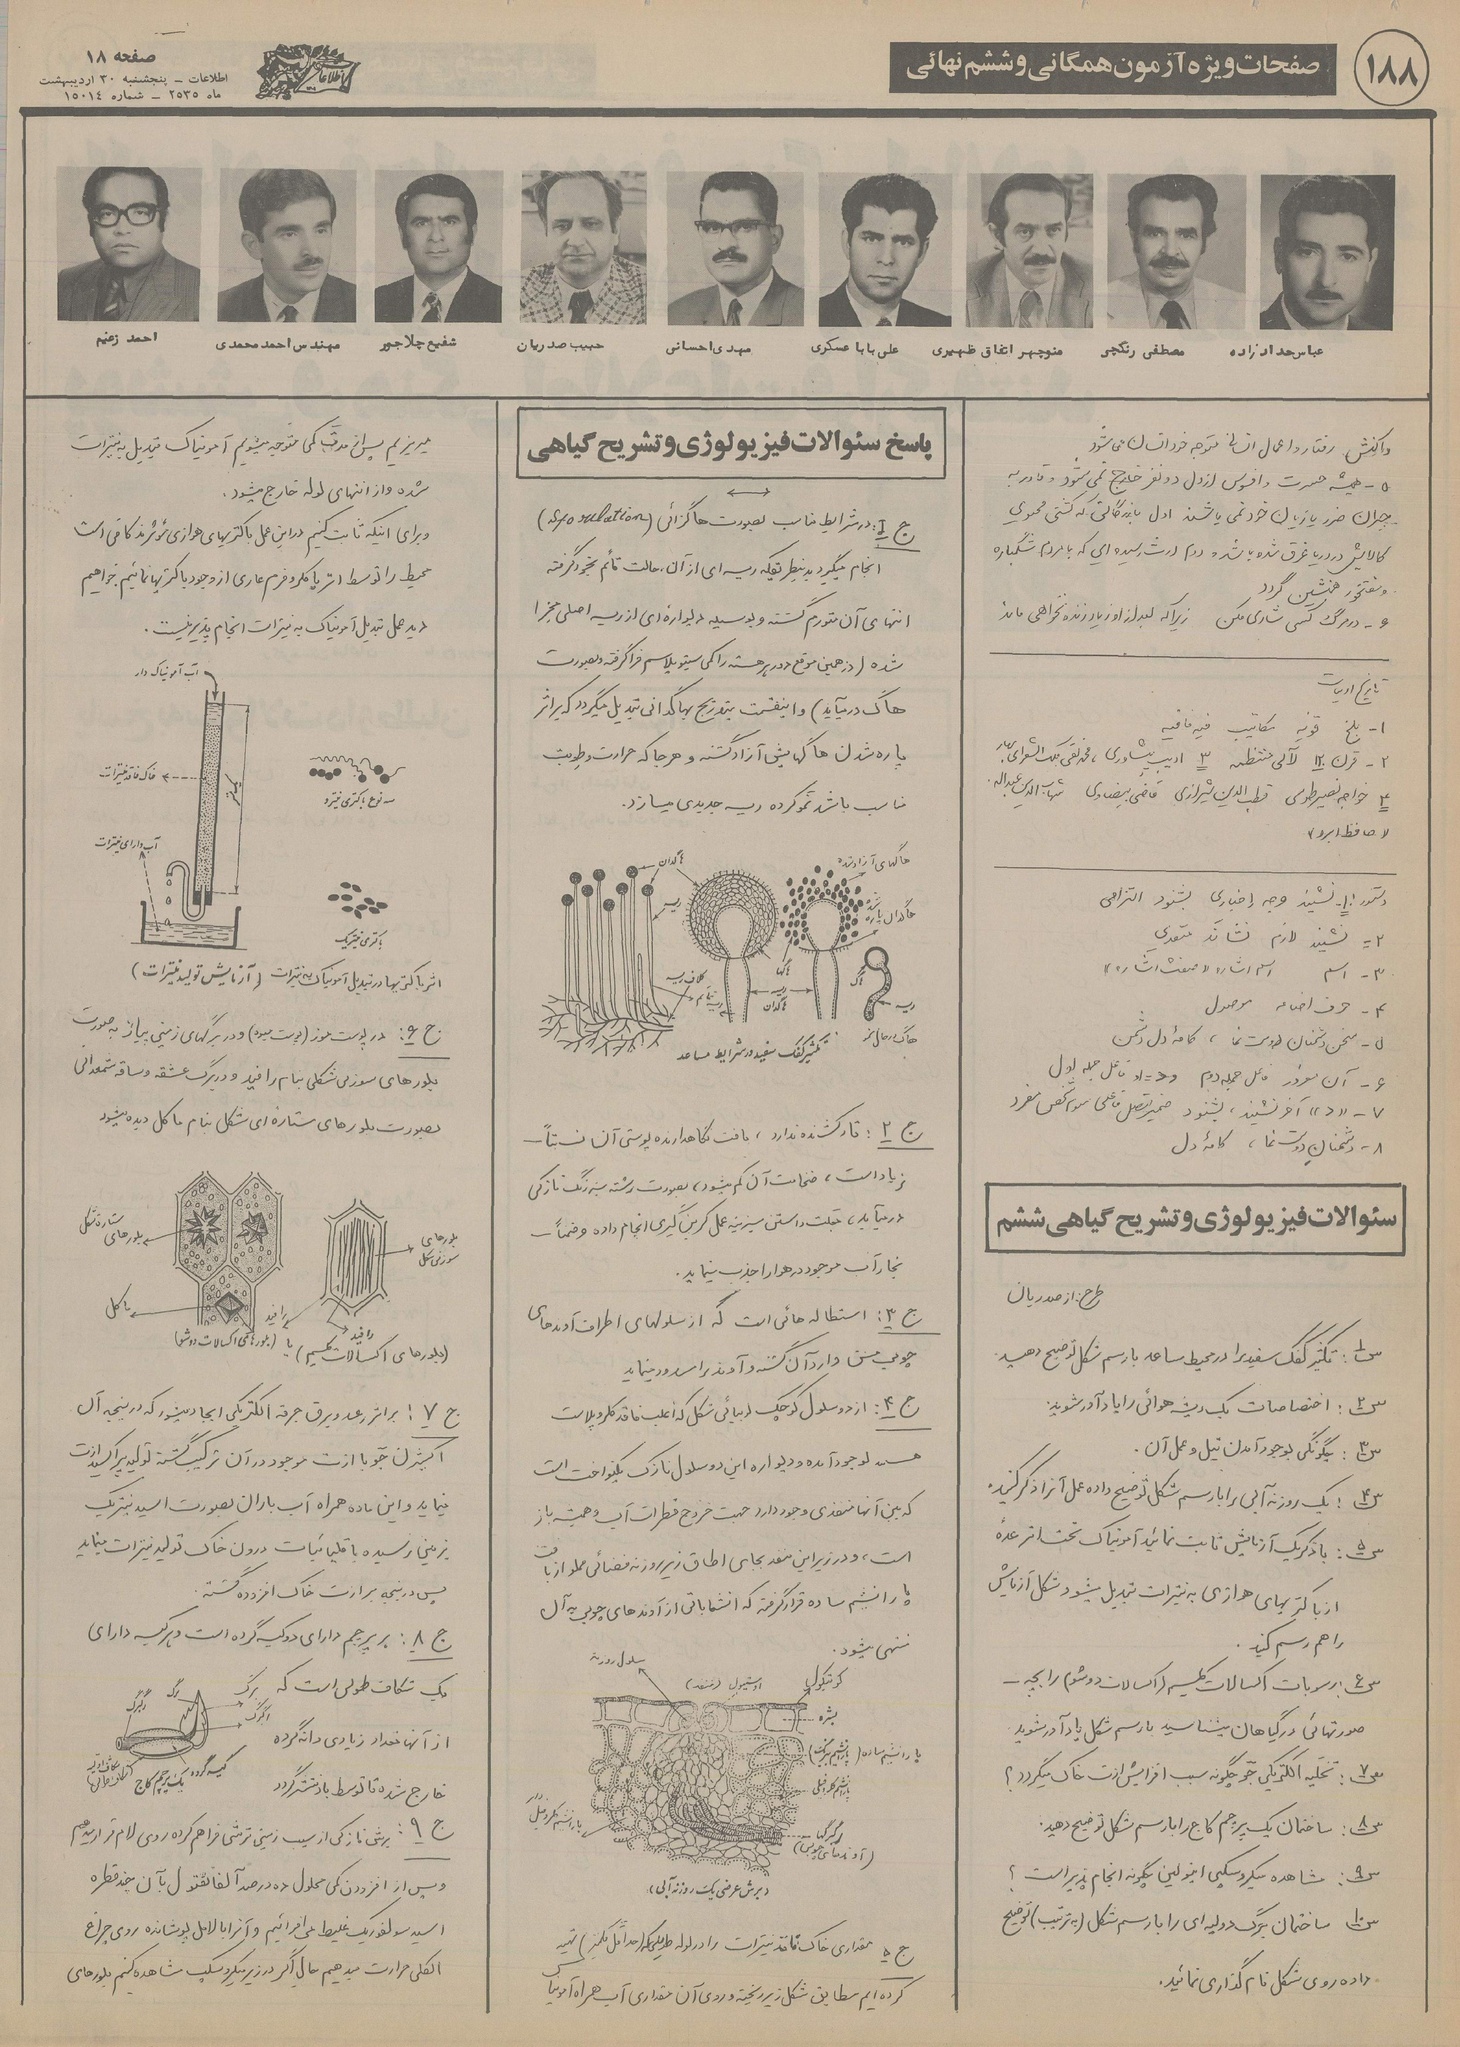 ۱۸۸
صفحات ویژه آزمون همگانی و ششم نهائی
اطلاعات
صفحه ۱۸
اطلاعات – پنجشنبه ۳۰ اردیبهشت
ماه ۲۵۳۵ – شماره ۱۵۰۱۴
عباس حدادزاده
مصطفی رنگچی
منوچهر اتفاق ظهیری
علی بابا عسکری
مهدی احسانی
حبیب صدریان
شفیع چلاجور
مهندس احمد محمدی
احمد زعیم
واکنش رفتار و اعمال انسان متوجه خود انسان می‌شود
۵- همیشه حسرت و افسوس از دل دو نفر خارج نمی‌شود و قادر به
جبران ضرر یا زیان خود نمی‌باشند اول بازرگانی که کشتی محتوی
کالایش در دریا غرق شده باشد و دوم ارث رسیده‌ای که با مردم
و مفتخور همنشین گردد
۶- در مرگ کسی شادی مکن زیرا که بعد از او زیاد زنده نخواهی ماند
تاریخ ادبیات
۱- بلخ قونیه مکاتیب فیه مافیه
۲- قرن ۱۲ لآلی منتظمه ۳ ادیب پیشاوری، محمدتقی ملک الشعرای بهار
۴ خواجه نصیر طوسی قطب‌الدین شیرازی قاضی بیضاوی شهاب‌الدین عبداله
«حافظ ابرو»
دستور: ۱- نشیند وجه اخباری بشنود التزامی
۲= نشیند لازم نشاند متعدی
۳- اسم اسم اشاره «صفت اشاره»
۴- حرف اضافه موصول
۵- سخن دشمنان دوست نما، کامهٔ دل دشمن
۷- «د» آخر نشیند، بشنود ضمیر متصل فاعلی سوم شخص مفرد
۸- دشمنان دوست نما، کامهٔ دل
سئوالات فیزیولوژی و تشریح گیاهی ششم
طرح: از صدریان
س۱: تکثیر کفک سفید را در محیط مساعد با رسم شکل توضیح دهید.
س۲: اختصاصات یک ریشه هوائی را یادآور شوید.
س۳: چگونگی بوجود آمدن تیل و عمل آن.
س۴: یک روزنه آبی را با رسم شکل توضیح داده عمل آنرا ذکر کنید.
س۵: با ذکر یک آزمایش ثابت نمائید آمونیاک تحت اثر عده
از باکتریهای هوازی به نیترات تبدیل میشود و شکل آزمایش
را هم رسم کنید.
س۶: رسوبات اکسالات کلسیم (اکسالات دوشو) را بچه –
صورتهائی در گیاهان میشناسید با رسم شکل یادآور شوید.
س۷: تخلیه الکتریکی جو چگونه سبب افزایش ازت خاک میگردد؟
س۸: ساختمان یک پرچم کاج را با رسم شکل توضیح دهید.
س۹: مشاهده میکروسکپی اینولین چگونه انجام پذیر است؟
س۱۰ ساختمان برگ دولپه‌ای را با رسم شکل (به ترتیب) توضیح
داده روی شکل نام گذاری نمائید.
پاسخ سئوالات فیزیولوژی و تشریح گیاهی
ج۱: در شرایط مناسب بصورت هاگزائی (Sporulation)
انجام میگیرد بدینطریق که ریسه‌ای از آن، حالت قائم بخود گرفته
انتهای آن متورم گشته و بوسیله دیواره‌ای از ریسه اصلی مجزا
شده (در همین موقع دور هر هسته را کمی سیتوپلاسم فرا گرفته و بصورت
هاگ درمیآید) و اینقسمت بتدریج بهاگدانی تبدیل میگردد که بر اثر
پاره شدن هاگهایش آزاد گشته و هر جا که حرارت و رطوبت
مناسب باشد نمو کرده ریسه جدیدی میسازد.
هاگدان
ریسه
هاگهای آزاد شده
هاگدان پاره شده
هاگها
هاگدان
ریسه
هاگ
ریسه
هاگ در حال نمو
تکثیر کفک سفید در شرایط مساعد
ج۲: تارکشنده ندارد، بافت نگاهدارنده پوستی آن نسبتاً –
زیاد است، ضخامت آن کم میشود، بصورت رشته سبزرنگ نازکی
درمیآید، بعلت داشتن سبزینه عمل کربن گیری انجام داده و ضمناً –
بخار آب موجود در هوا را جذب مینماید.
ج۳: استطاله هائی است که از سلولهای اطراف آوندهای
چوبی مسن وارد آن گشته و آوند را مسدود مینماید
ج۴: از دو سلول کوچک لوبیائی شکل که اغلب فاقد کلروپلاست
هستند بوجود آمده و دیواره این دو سلول نازک و یکنواخت است
که بین آنها منفذی وجود دارد جهت خروج قطرات آب و همیشه باز
است، و در زیر این منفذ بجای اطاق زیر روزنه فضائی مملو از بافت
پارانشیم ساده قرار گرفته که انشعاباتی از آوندهای چوبی به آن
منتهی میشود.
سلول روزنه
استیول (منفذ)
کوتیکول
بشره
(آوندهای چوبی)
(برش عرضی یک روزنه آبی).
ج۵ مقداری خاک فاقد نیترات را در لوله طویلی که (حداقل یکمتر) تهیه
کرده‌ایم مطابق شکل زیر ریخته و روی آن مقداری آب همراه آمونیاک
میریزیم پس از مدت کمی متوجه میشویم آمونیاک تبدیل به نیترات
شده و از انتهای لوله خارج میشود.
و برای اینکه ثابت کنیم در این عمل باکتریهای هوازی مؤثرند کافی است
محیط را توسط اتر یا کلروفرم عاری از وجود باکتریها نمائیم خواهیم
دید عمل تبدیل آمونیاک به نیترات انجام پذیر نیست.
آب آمونیاک دار
خاک فاقد نیترات
یکمتر
آب دارای نیترات
سه نوع باکتری نیترو
باکتری نیتریک
اثر باکتریها در تبدیل آمونیاک به نیترات (آزمایش تولید نیترات)
ج۶: در پوست موز (پوست میوه) و در برگهای زمینی پیاز به صورت
بلورهای سوزنی شکلی بنام رافید و در برگ عشقه و ساقه شمعدانی
بصورت بلورهای ستاره‌ای شکل بنام ماکل دیده میشود
بلورهای ستاره شکل
بلورهای سوزنی شکل
ماکل
رافید
(بلورهای اکسالات کلسیم) یا (بلورهای اکسالات دوشو)
ج۷: بر اثر رعد و برق جرقه الکتریکی ایجاد میشود که در نتیجه آن
اکسیژن جو با ازت موجود در آن ترکیب گشته تولید پراکسید ازت
مینماید و این ماده همراه آب باران بصورت اسید نیتریک
بزمین رسیده با قلیائیات درون خاک تولید نیترات مینماید
پس در نتیجه بر ازت خاک افزوده گشته.
ج۸: هر پرچم دارای دو کیسه گرده است و هر کیسه دارای
یک شکاف طولی است که
از آنها تعداد زیادی دانه گرده
خارج شده تا توسط باد منتشر گردد
کیسه گرده
یک پرچم کاج
ج۹: برش نازکی از سیب زمینی ترشی فراهم کرده روی لام قرار میدهیم
و پس از افزودن کمی محلول ده درصد آلفانفتول بآن چند قطره
اسید سولفوریک غلیظ می‌افزائیم و آنرا با لامل پوشانده روی چراغ
الکلی حرارت میدهیم حال اگر در زیر میکروسکپ مشاهده کنیم بلورهای